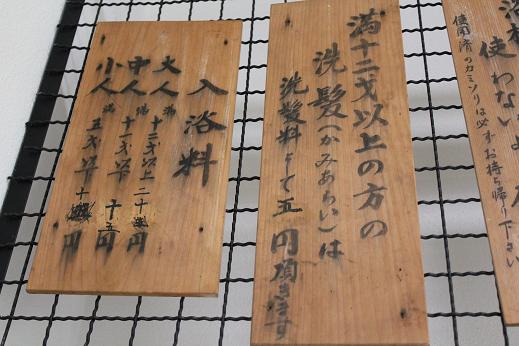 使わない
使用済のカミソリは必ずお持ち帰り下さい
満十二才以上の方の
洗髪(かみあらい)は
洗髪料として五円頂きます
入浴料
大人 満十二才以上二十円
中人 満十一才以下十五円
小人 満五才以下十円